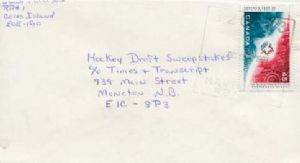 RR#1
Island
E0E-1P0
Hockey Draft Sweepstakes
c/o Times & Transcript
939 Main Street
Moncton N.B.
E1C-8P3
CANADA
45